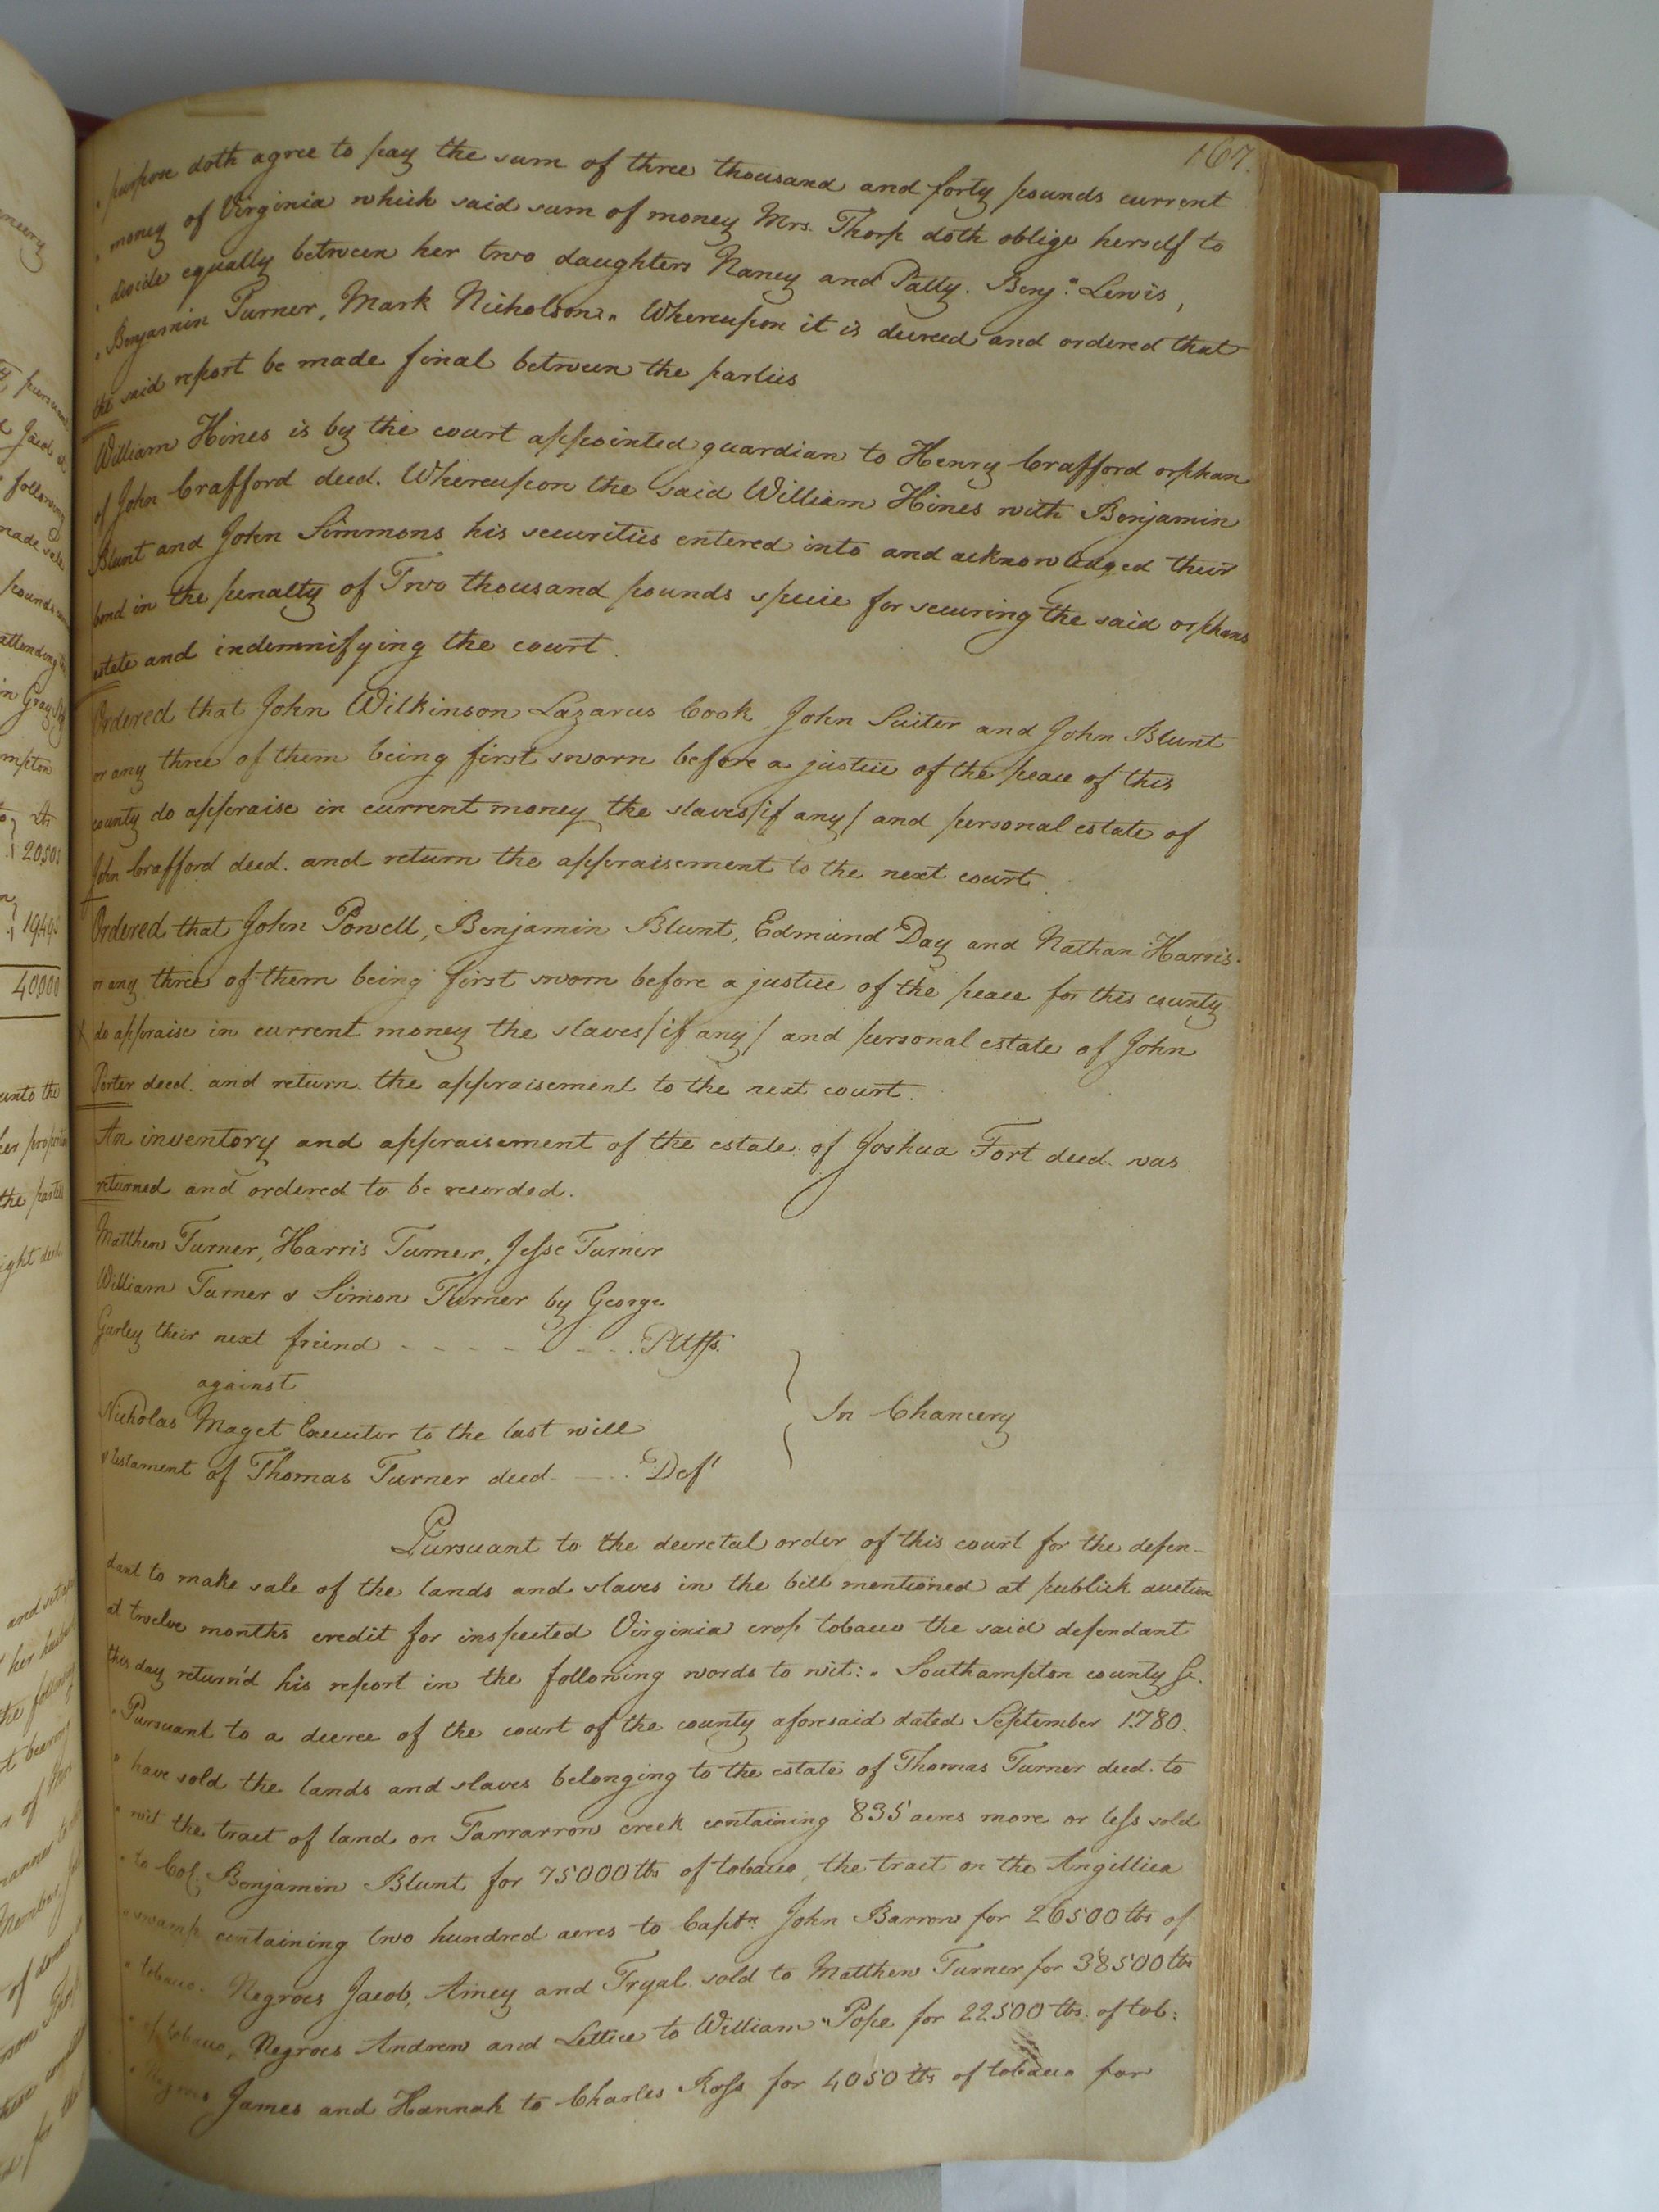 167.
" purpose doth agree to pay the sum of three thousand and forty pounds current
" money of Virginia which said sum of money Mrs. Thorp doth oblige herself to
" divide equally between her two daughters Nancy and Patty. Benj.n Lewis,
" Benjamin Turner, Mark Nicholson." Whereupon it is decreed and ordered that
the said report be made final between the parties
William Hines is by the court appointed guardian to Henry Crafford orphan
of John Crafford deed. Whereupon the said William Hines with Benjamin
Blunt and John Simmons his securities entered into and acknowledged their
bond in the penalty of Two thousand pounds specie for securing the said orphans
estate and indemnifying the court.
Ordered that John Wilkinson Lazarus Cook John Suiter and John Blunt
or any three of them being first sworn before a justice of the peace of this
county do appraise in current money the slaves/if any/ and personal estate of
John Crafford deed. and return the appraisement to the next court.
Ordered that John Powell, Benjamin Blunt, Edmund Day and Nathan Harris.
or any three of them being first sworn before a justice of the peace for this county
do appraise in current money the slaves/if any/ and personal estate of John
Porter deed. and return the appraisement to the next court.
An inventory and appraisement of the estate of Joshua Fort deed. was
returned and ordered to be recorded.
Matthew Turner, Harris Turner, Jesse Turner
William Turner & Simon Turner by George
Gurley their next friend - - - - - - - Pltffs.
against
Nicholas Maget Executor to the last will
& testament of Thomas Turner deed - - - . Def.t
In Chancery
Pursuant to the decretal order of this court for the defen-
dant to make sale of the lands and slaves in the bill mentioned at publick auction
at twelve months credit for inspected Virginia crop tobacco the said defendant
this day return'd his report in the following words to wit: " Southampton county Sc.
" Pursuant to a decree of the court of the county aforesaid dated September 1780.
" have sold the lands and slaves belonging to the estate of Thomas Turner deed. to
" wit the tract of land on Tarrarrow creek containing 835 acres more or less sold
" to Col. Benjamin Blunt for 75000 lbs of tobacco, the tract on the Angillica
" swamp containing two hundred acres to Capt.n John Barrow for 26500 lbs of
" tobacco. Negroes Jacob, Amey and Tryal sold to Matthew Turner for 38500 lbs
" of tobacco, Negroes Andrew and Lettice to William " Pope for 22500 lbs. of tob:
" Negroes James and Hannah to Charles Ross for 4050 lbs of tobacco for
20,505
40,000